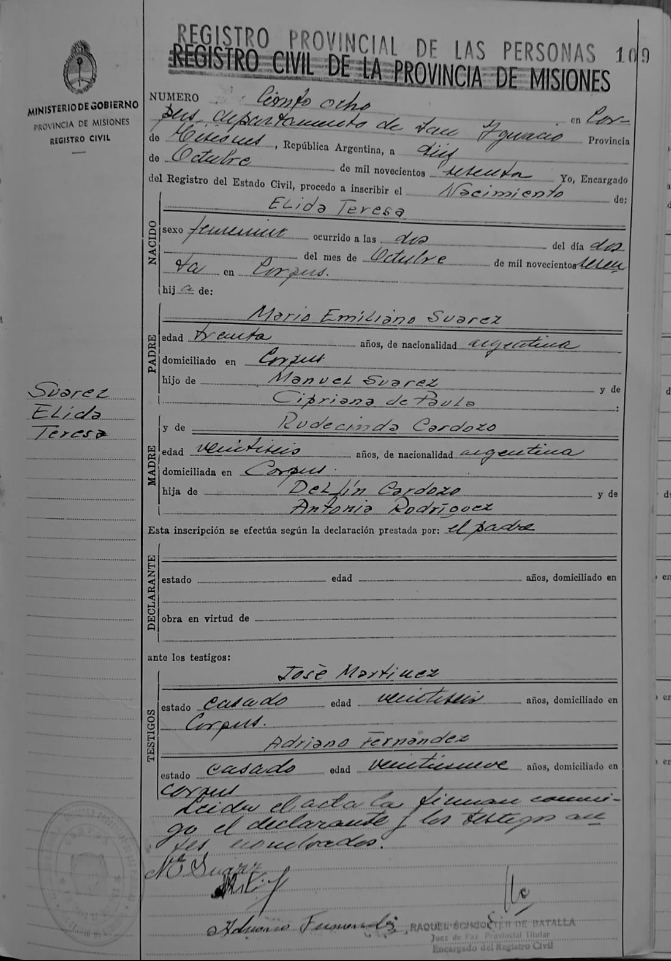 REGISTRO PROVINCIAL DE LAS PERSONAS 109
REGISTRO CIVIL DE LA PROVINCIA DE MISIONES
MINISTERIO DE GOBIERNO
PROVINCIA DE MISIONES
REGISTRO CIVIL
NUMERO Ciento ocho en Cor-
pus departamento de San Ignacio Provincia
de Misiones, República Argentina, a diez
de Octubre de mil novecientos sesenta Yo, Encargado
del Registro del Estado Civil, procedo a inscribir el Nacimiento de:
NACIDO
Elida Teresa
sexo femenino ocurrido a las dos del día dos
del mes de Octubre de mil novecientos sesen
ta en Corpus.
hija de:
PADRE
Mario Emiliano Suarez
edad treinta años, de nacionalidad argentina
domiciliado en Corpus
hijo de Manuel Suarez y de
Cipriana de Paula :
Suarez
Elida
Teresa
MADRE
y de Rudecinda Cardozo
edad veintiseis años, de nacionalidad argentina
domiciliada en Corpus.
hija de Delfín Cardozo y de
Antonia Rodríguez
Esta inscripción se efectúa según la declaración prestada por: el padre
DECLARANTE
estado edad años, domiciliado en
obra en virtud de
ante los testigos:
TESTIGOS
José Martinez
estado casado edad veintiseis años, domiciliado en
Corpus.
Adriano Fernández
estado casado edad veintinueve años, domiciliado en
Corpus
Leida el acta la firman conmi-
go el declarante y los testigos an-
tes nombrados.
M. Suarez
Adriano Fernandez
RAQUEL DE BATALLA
Juez de Paz Provincial Titular
Encargado del Registro Civil